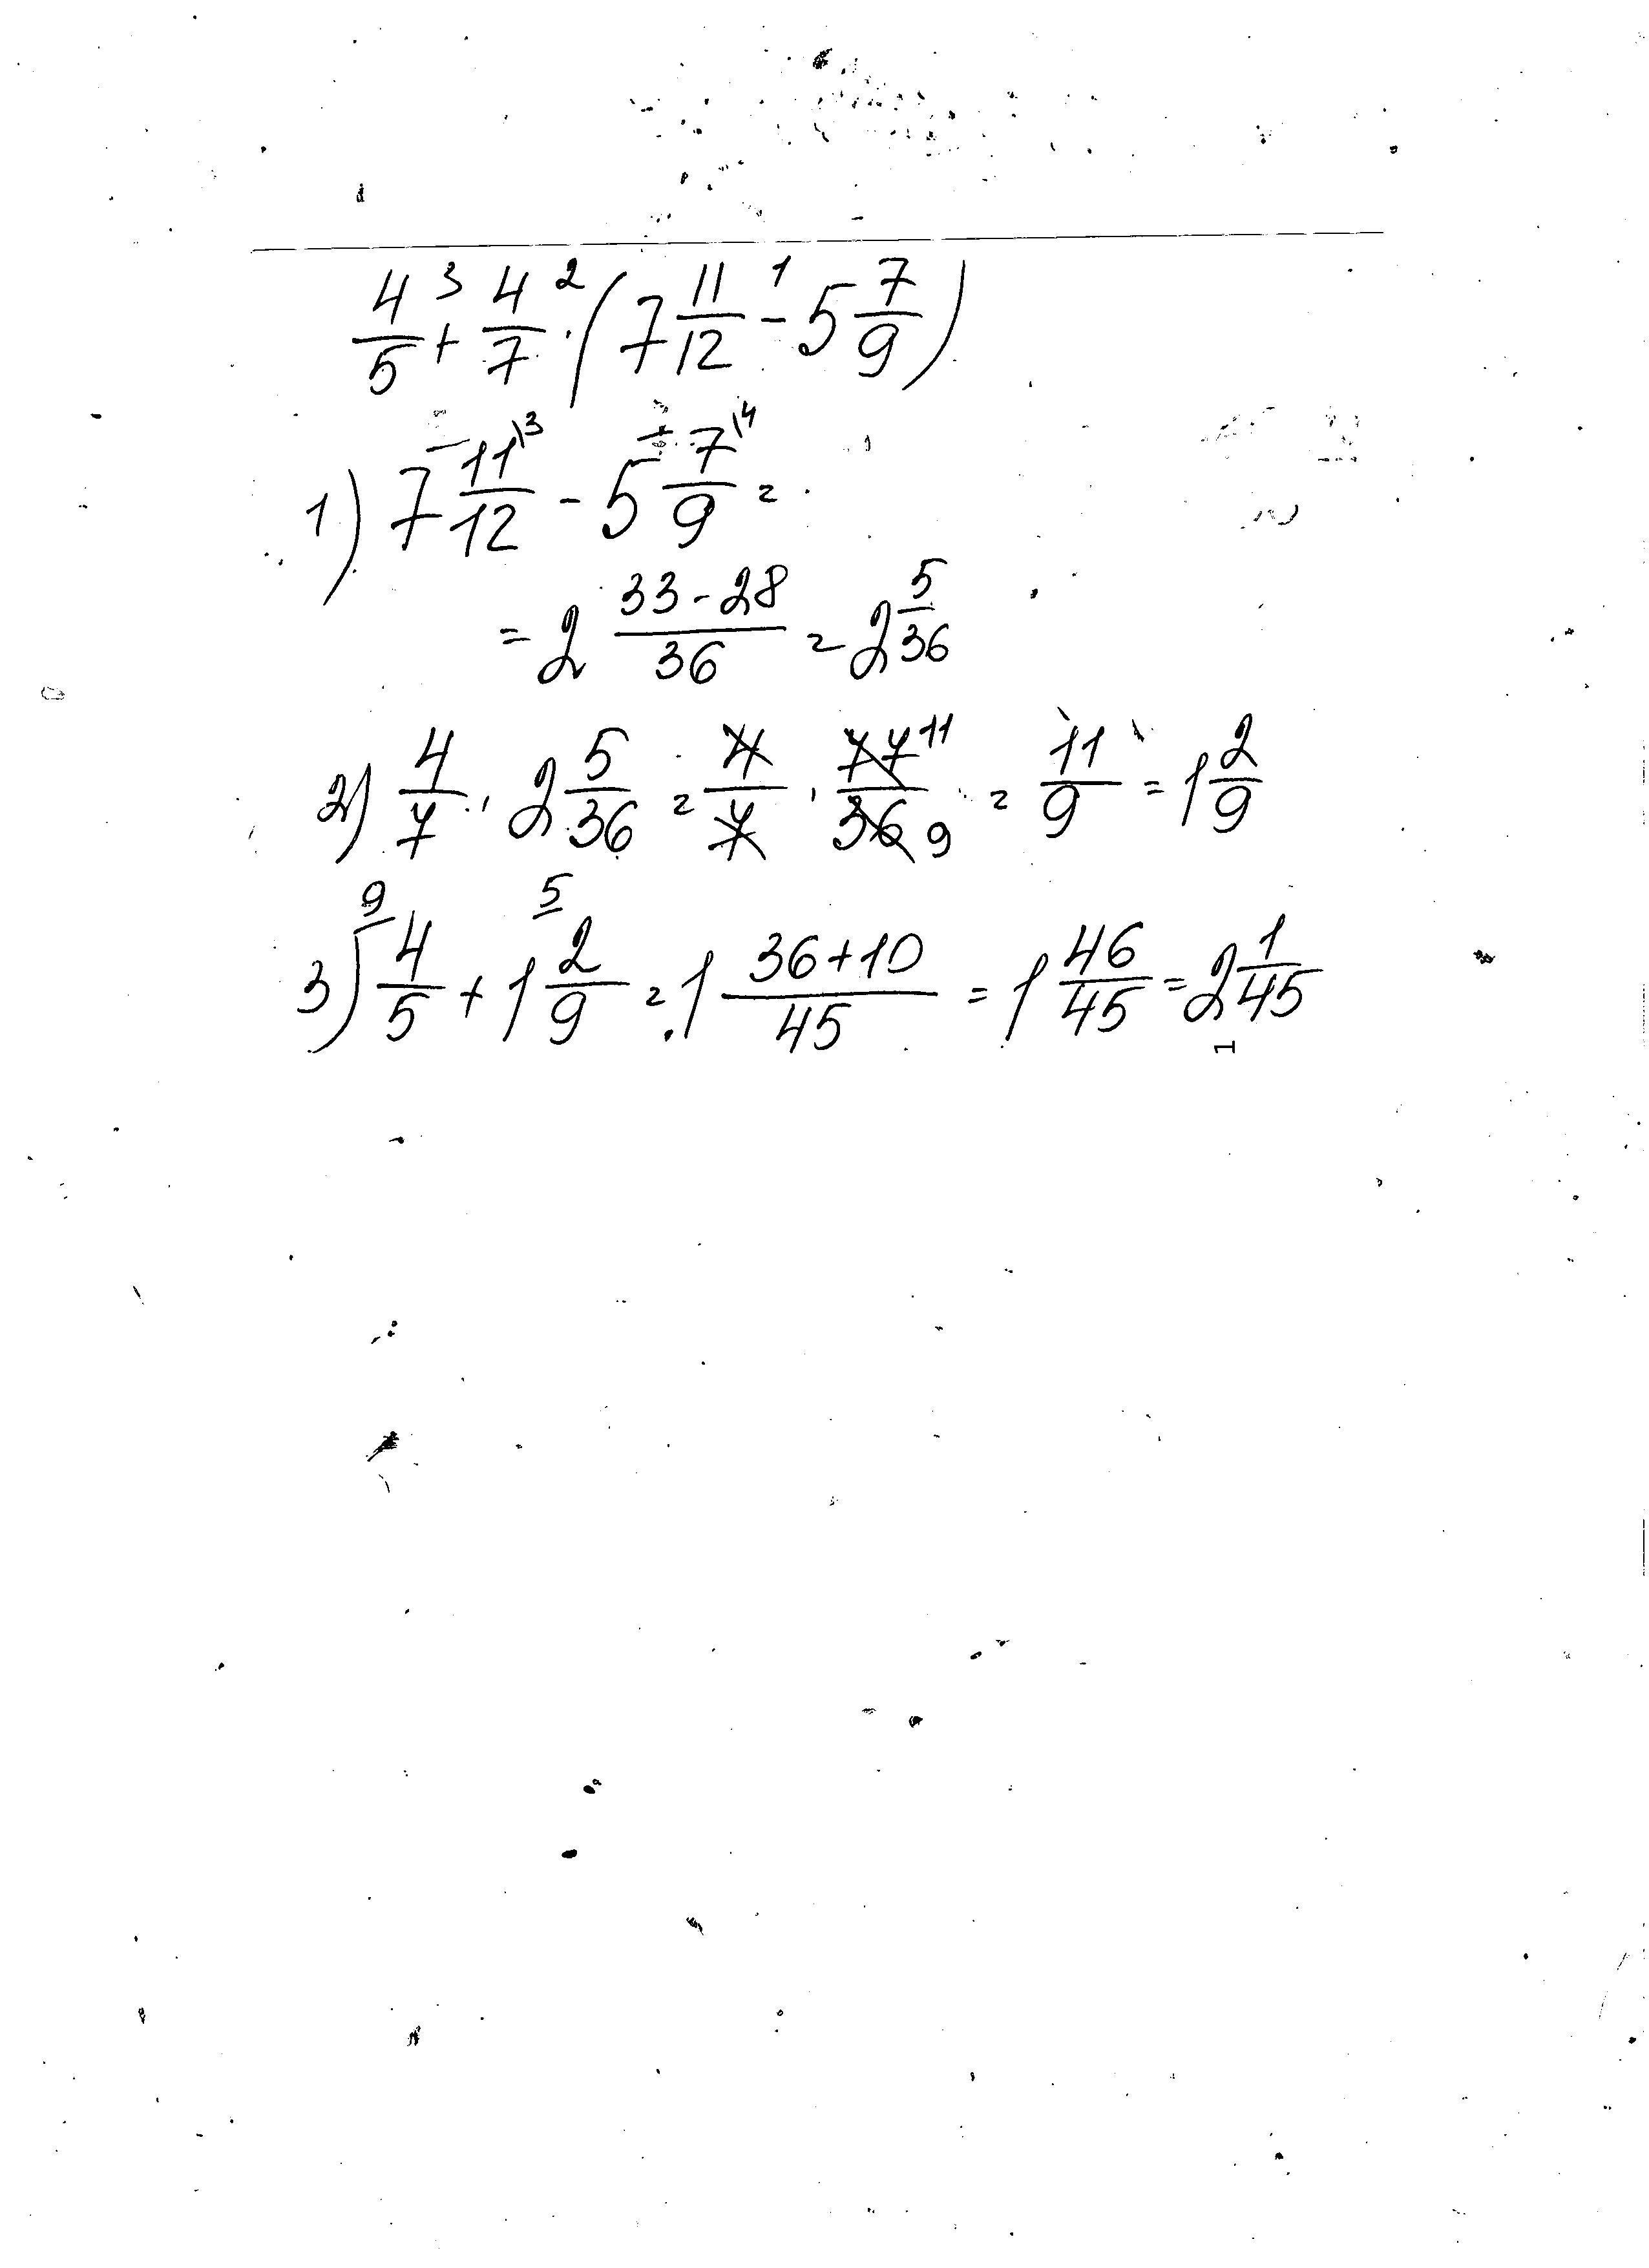 4/5 +³ 4/7 ·² (7 11/12 -¹ 5 7/9)
1) 7 11\³/12 - 5 7\⁴/9 =
= 2 (33-28)/36 = 2 5/36
2) 4/7 · 2 5/36 = 4/7 · 77/36 11 9 = 11/9 = 1 2/9
3) ⁹4/5 + 1 ⁵2/9 = 1 (36+10)/45 = 1 46/45 = 2 1/45
1